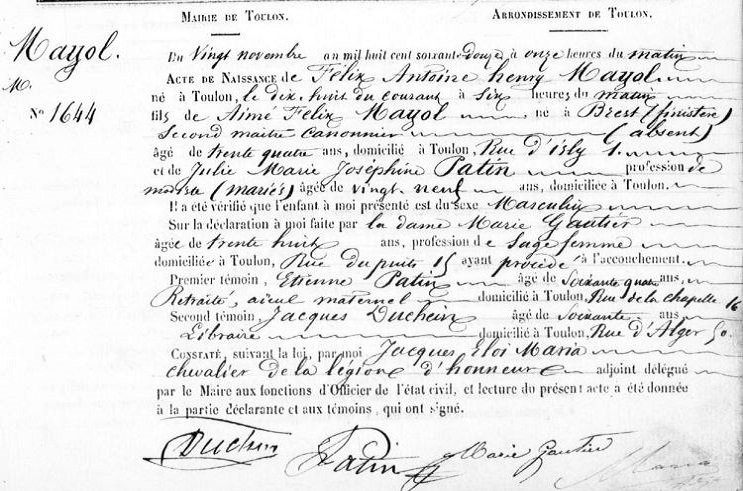 MAIRIE DE TOULON. ARRONDISSEMENT DE TOULON.
Mayol.
M.
N° 1644
Du Vingt novembre an mil huit cent soixante douze à onze heures du matin
ACTE DE NAISSANCE de Félix Antoine henry Mayol
né à Toulon, le dix huit du courant à six heures du matin
fils de Aimé Félix Mayol né à Brest (finistère)
Second maitre canonnier (absent)
âgé de trente quatre ans, domicilié à Toulon, Rue d'isly 1.
et de Julie Marie Joséphine Patin profession de
modiste (mariés) âgée de vingt neuf ans, domiciliée à Toulon.
Il a été vérifié que l'enfant à moi présenté est du sexe Masculin
Sur la déclaration à moi faite par la dame Marie Gautier
âgée de trente huit ans, profession de Sage femme
domiciliée à Toulon, Rue du puits 15 ayant procédé à l'accouchement.
Premier témoin, Etienne Patin âgé de Soixante quatre ans,
Retraité, aieul maternel domicilié à Toulon, Rue de la chapelle 16
Second témoin, Jacques Duchein âgé de soixante ans,
Libraire domicilié à Toulon, Rue d'Alger 50.
CONSTATÉ, suivant la loi, par moi Jacques Eloi Maria
chevalier de la légion d'honneur adjoint délégué
par le Maire aux fonctions d'Officier de l'état civil, et lecture du présent acte a été donnée
à la partie déclarante et aux témoins, qui ont signé.
Duchein Patin Marie Gautier Maria